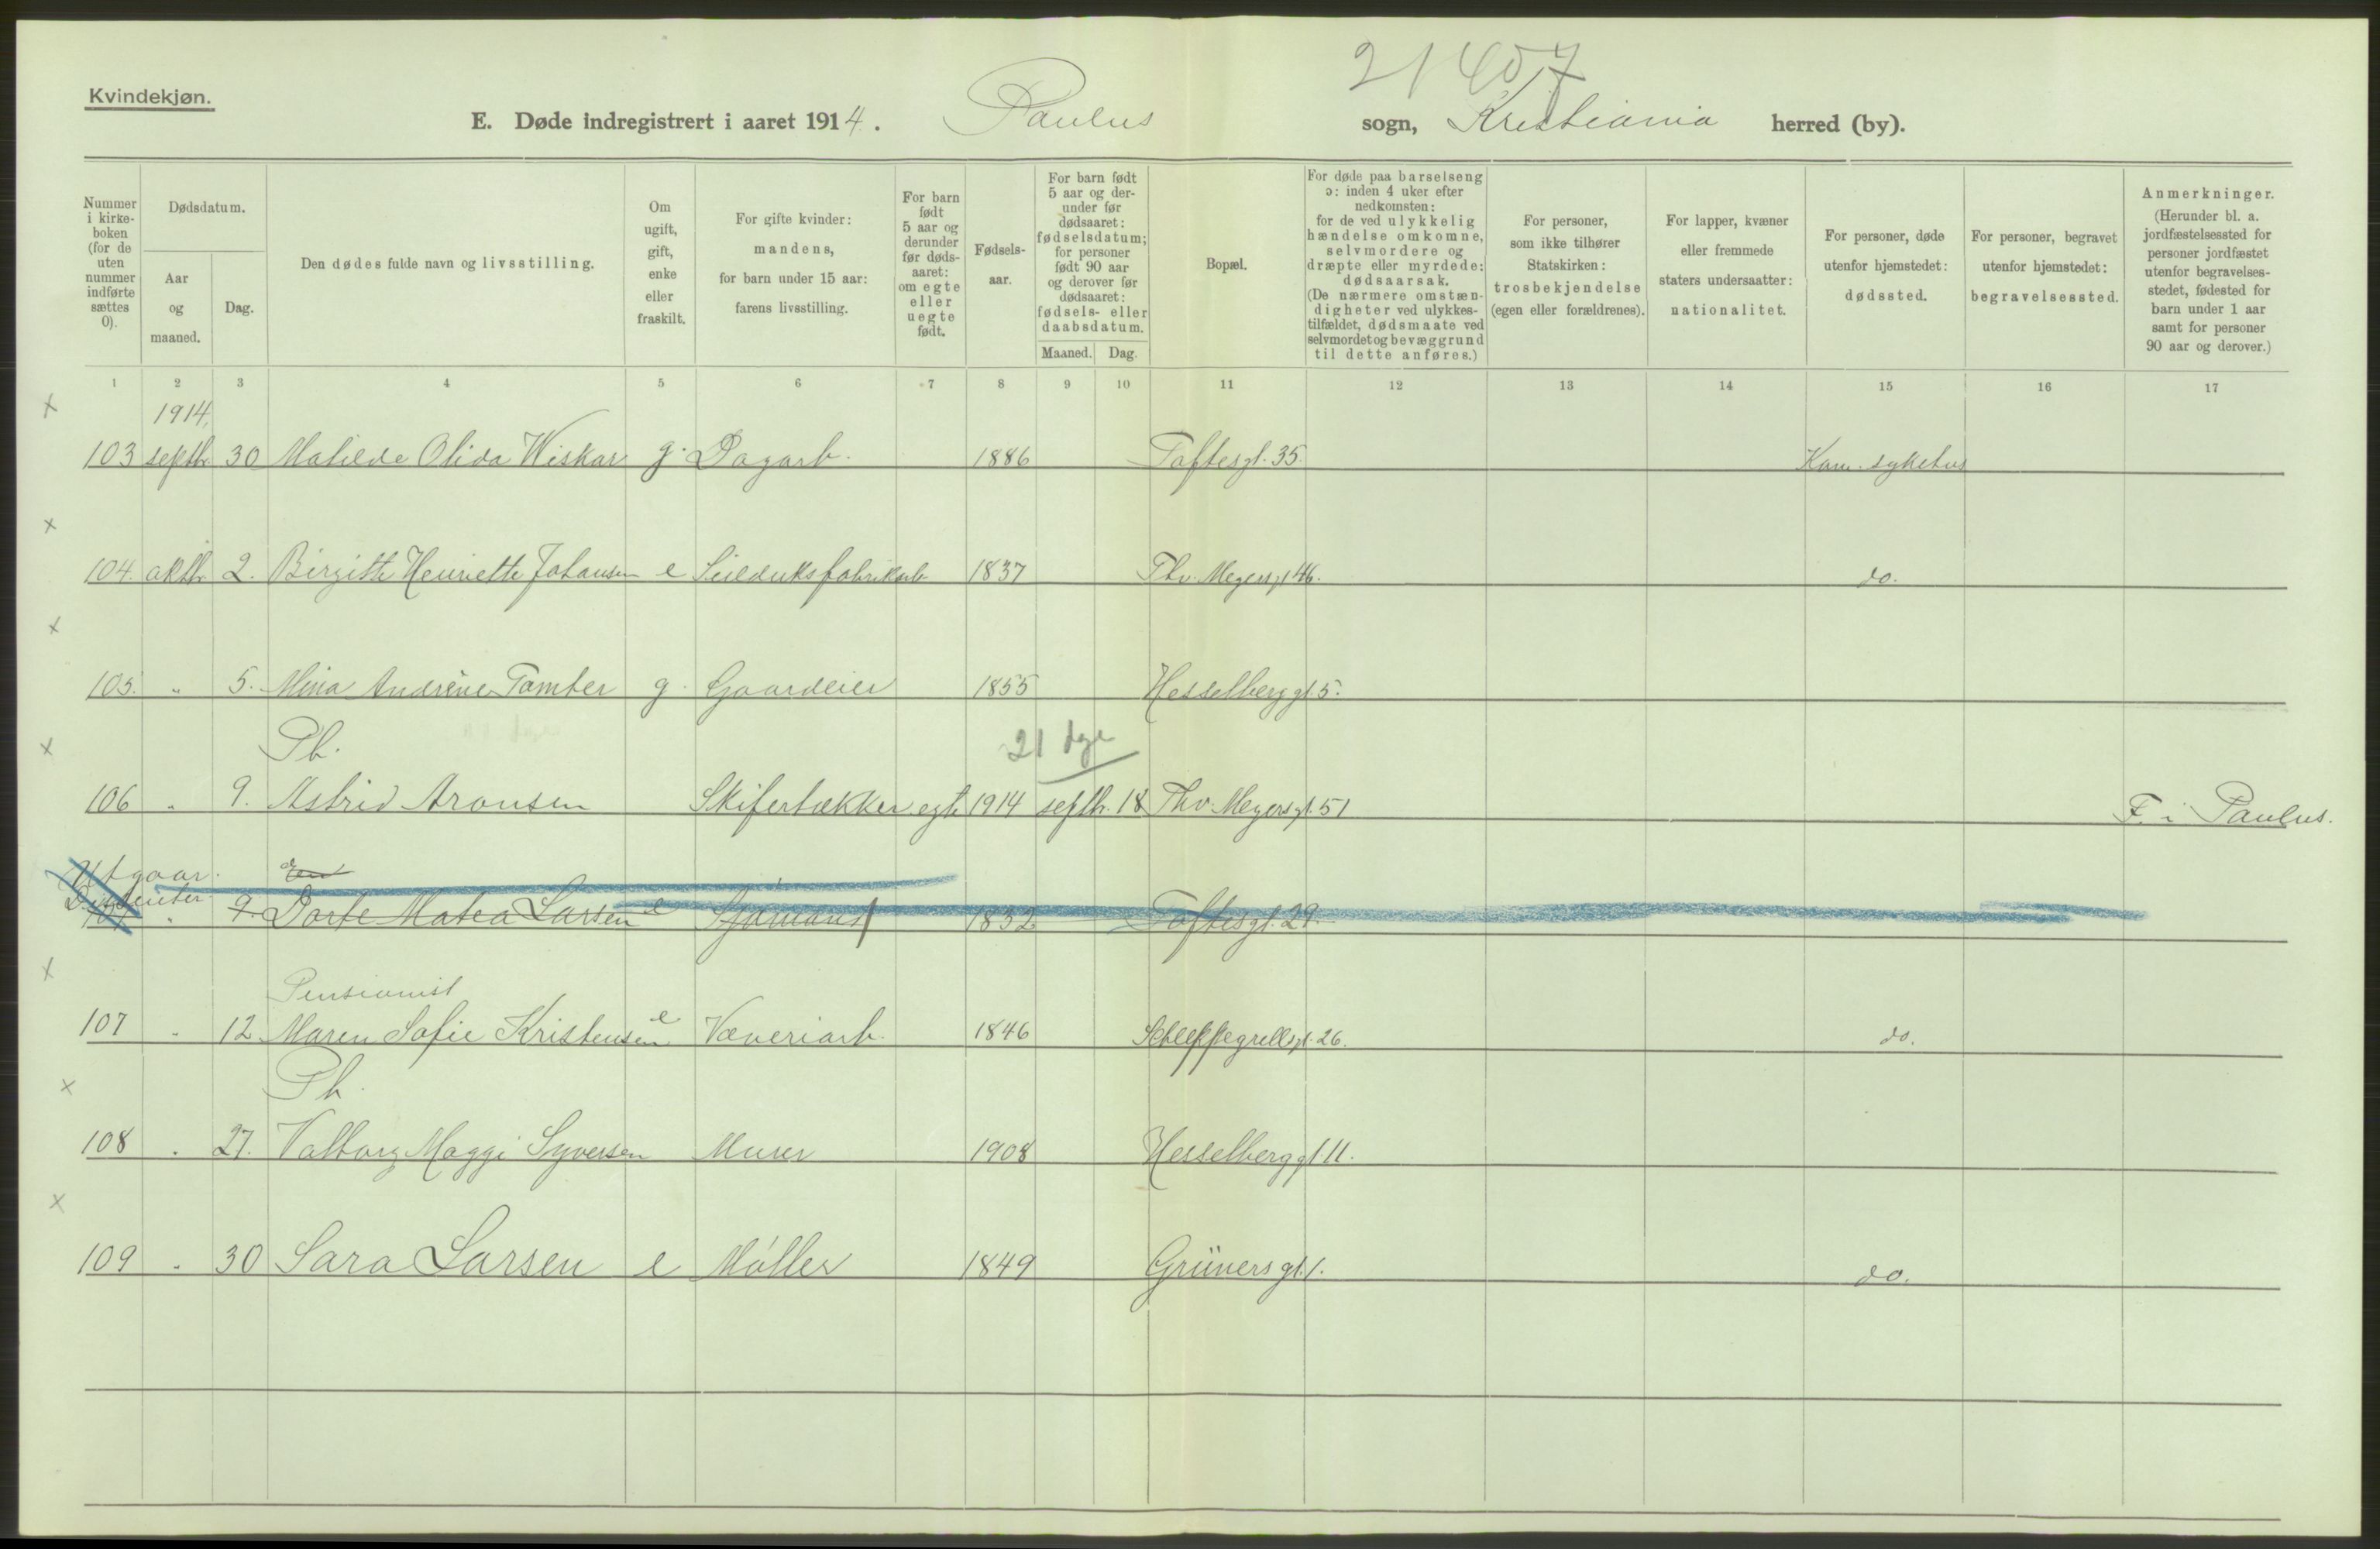 21 407
Kvindekjøn.
E. Døde indregistrert i aaret 1914. Paulus sogn, Kristiania herred (by).
Nummer i kirkeboken (for de uten nummer indførte sættes 0).
Dødsdatum.
Aar og maaned.
Dag.
Den dødes fulde navn og livsstilling.
Om ugift, gift, enke eller fraskilt.
For gifte kvinder: mandens, for barn under 15 aar: farens livsstilling.
For barn født 5 aar og derunder før dødsaaret: om egte eller uegte født.
Fødselsaar.
For barn født 5 aar og derunder før dødsaaret: fødselsdatum; for personer født 90 aar og derover før dødsaaret: fødsels- eller daabsdatum.
Maaned. Dag.
Bopæl.
For døde paa barselseng ɔ: inden 4 uker efter nedkomsten; for de ved ulykkelig hændelse omkomne, selvmordere og dræpte eller myrdede: dødsaarsak. (De nærmere omstændigheter ved ulykkestilfældet, dødsmaate ved selvmordet og bevæggrund til dette anføres.)
For personer, som ikke tilhører Statskirken: trosbekjendelse (egen eller forældrenes).
For lapper, kvæner eller fremmede staters undersaatter: nationalitet.
For personer, døde utenfor hjemstedet: dødssted.
For personer, begravet utenfor hjemstedet: begravelsessted.
Anmerkninger. (Herunder bl. a. jordfæstelsessted for personer jordfæstet utenfor begravelsesstedet, fødested for barn under 1 aar samt for personer 90 aar og derover.)
1 2 3 4 5 6 7 8 9 10 11 12 13 14 15 16 17
1914.
103 septb. 30 Matilde Olida Wiskar g. Dagarb. 1886 Toftesgt. 35. Kom. sykehus
104. oktb. 2. Birgitte Henriette Johansen e Seildugsfabrikarb. 1837 Thv. Meyersgt 46. do.
105. " 5. Mina Andrine Tamber g. Gaardeier 1855 Hesselberg gt. 5.
Pb. 21 dge
106 " 9. Astrid Aronsen Skifertækker egte 1914 septb. 18 Thv. Meyersgt. 51 F. i Paulus.
Utgaar.
Dissenter.
107 " 9. Dorte Matea Larsen e Sjømand 1832 Toftesgt. 29.
Pensionist
107 " 12 Maren Sofie Kristensen e Væveriarb. 1846 Schleppegrellsgt. 26. do.
Pb.
108 " 27. Valborg Maggi Syversen Murer 1908 Hesselberg gt. 11.
109 " 30 Sara Larsen e Møller 1849 Grünersgt. 1. do.